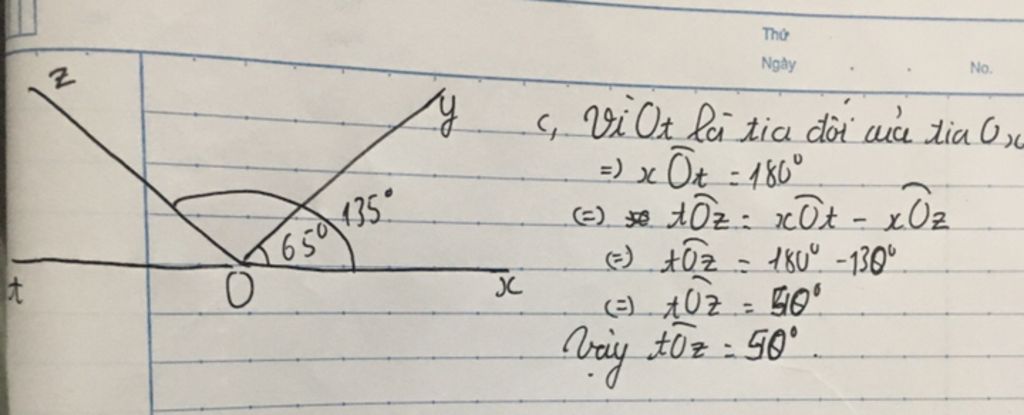 Thứ
Ngày
No.
z
y
135°
65°
t
O
x
c, Vì Ot là tia đối của tia Ox
=) xÔt = 180°
(=) tÔz = xÔt - xÔz
(=) tÔz = 180° - 130°
(=) tÔz = 50°
Vậy tÔz = 50°.